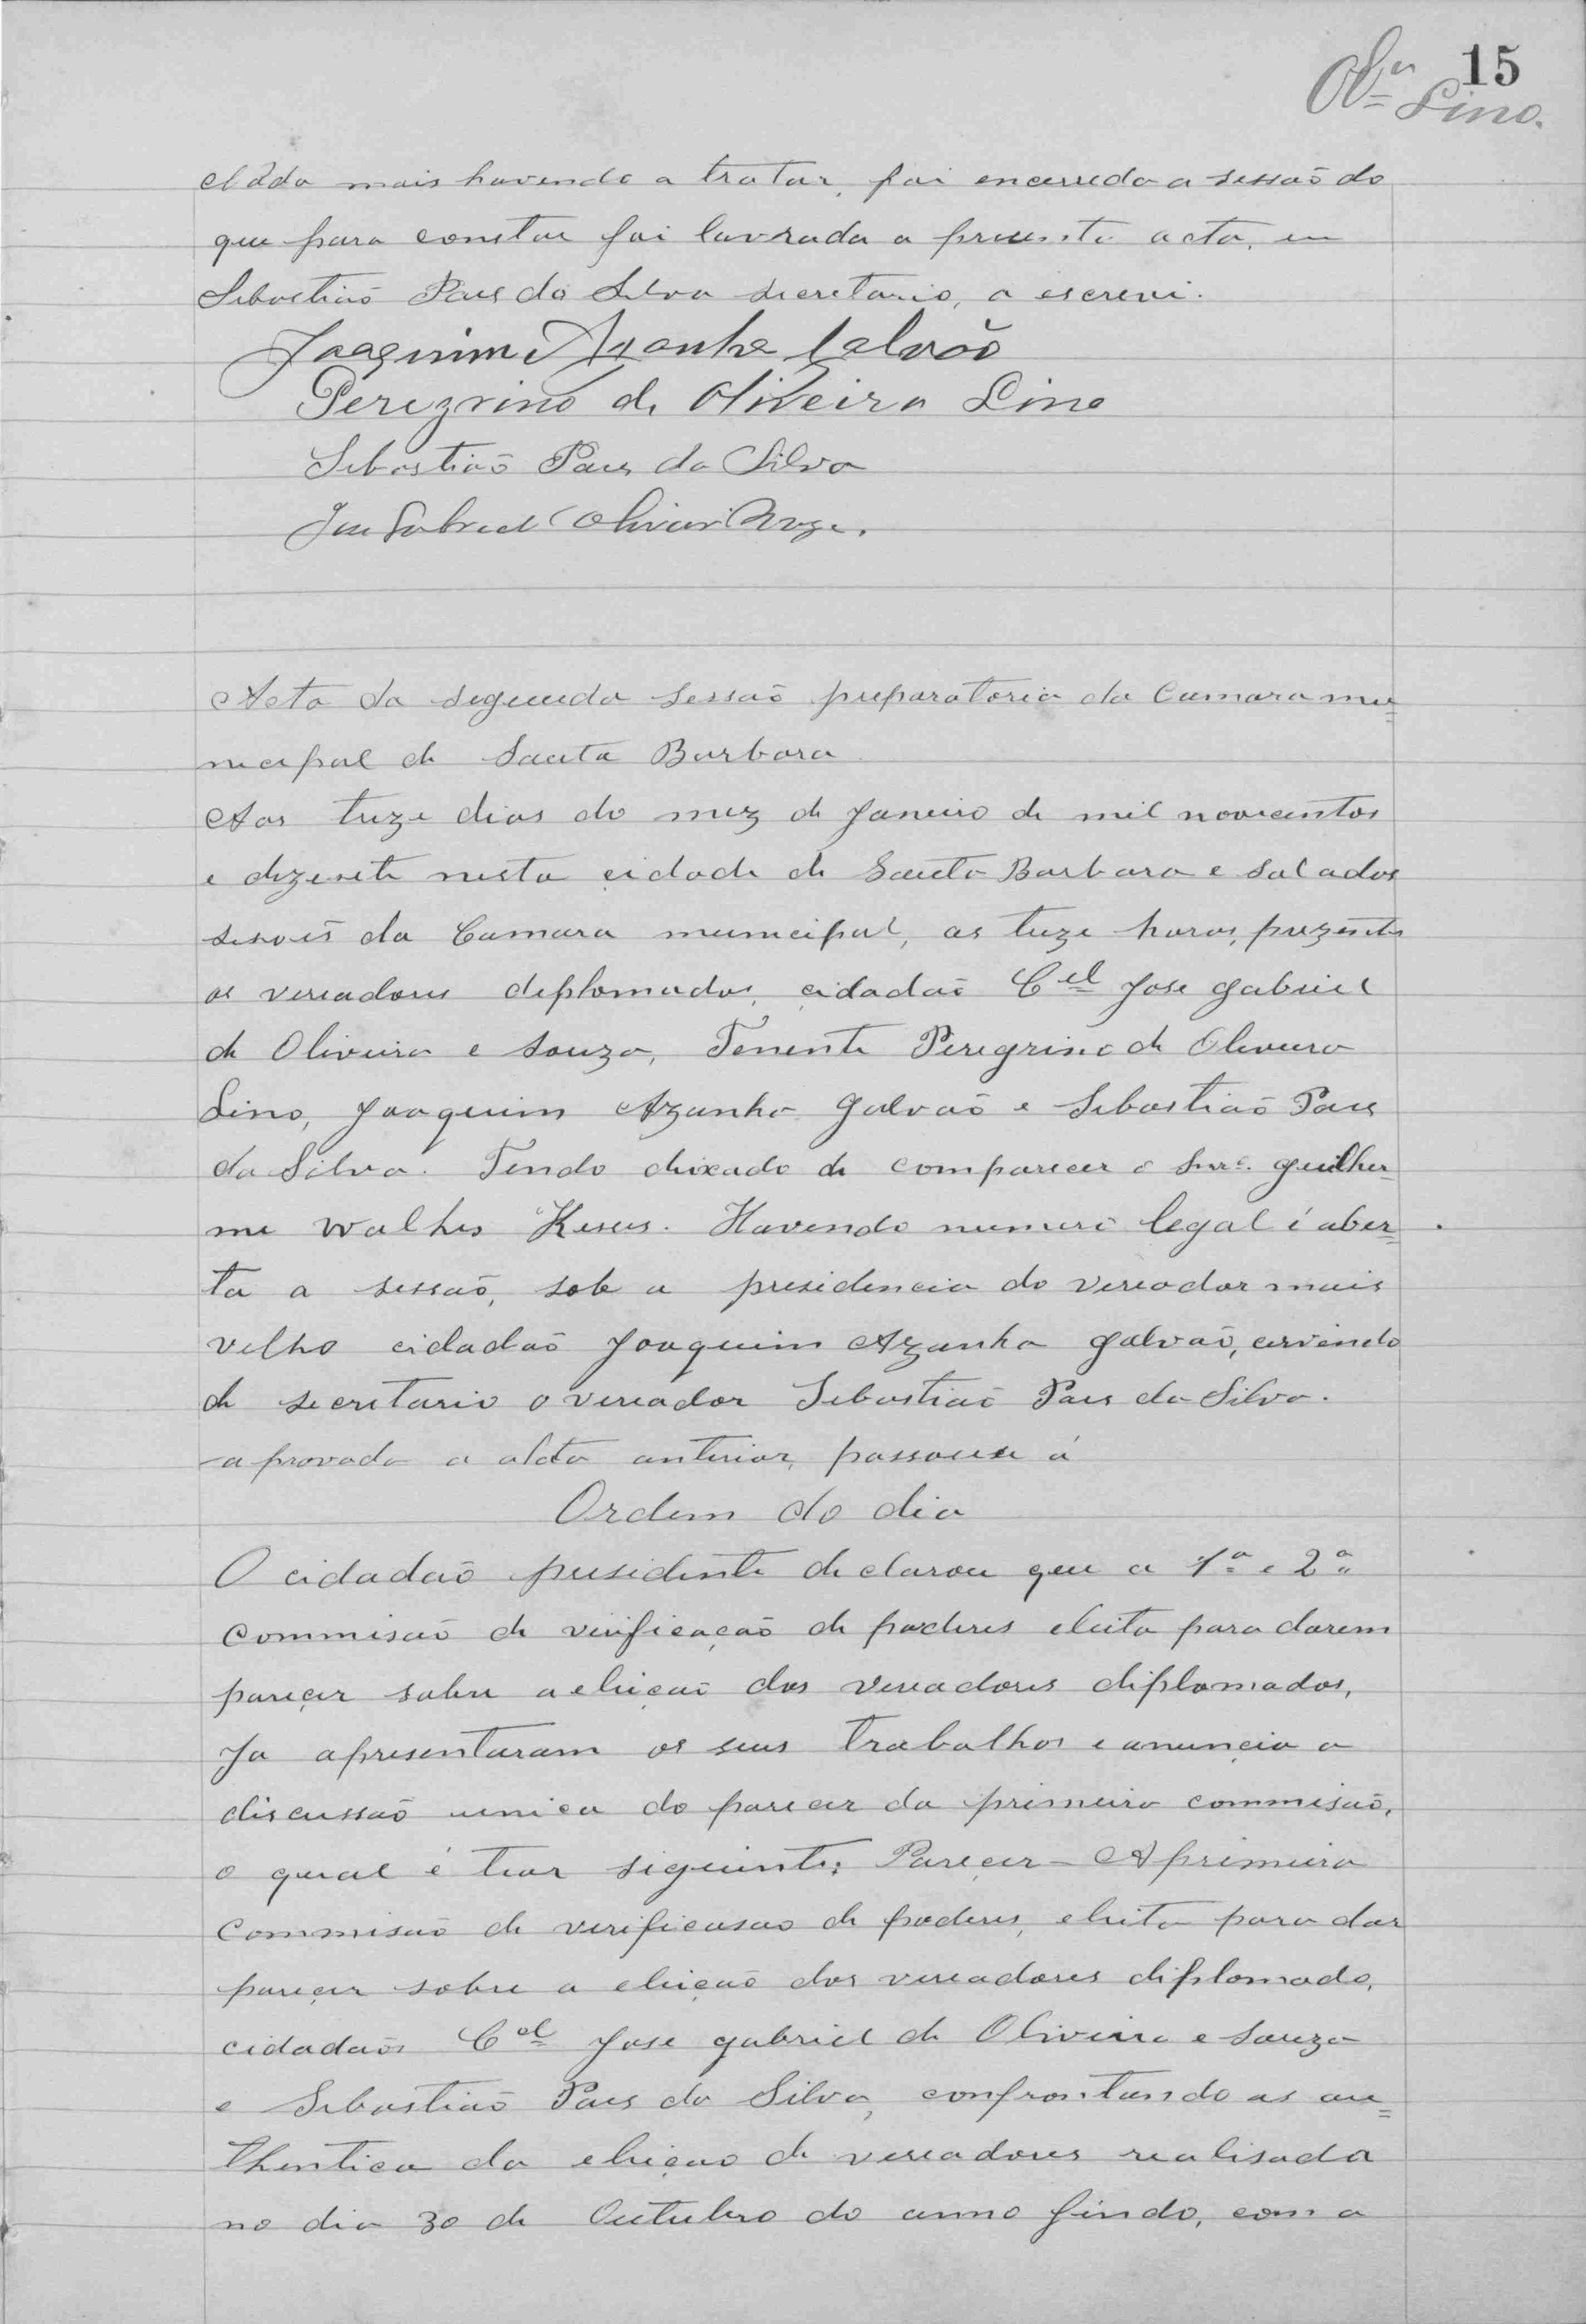 15
Olra
Lino.
Nada mais havendo a tratar, foi encerrada a sessaõ do
que para constar foi lavrada a presente acta, eu
Sebastiaõ Paes da Silva secretario, a escrevi.
Joaquim Azanha Galvaõ
Perezrino de Oliveira Lino
Sebastiaõ Paes da Silva
Jose Gabriel Oliveira Souza.
Acta da segunda sessaõ preparatoria da Camara mu=
nicipal de Santa Barbara
Aos treze dias do mez de Janeiro de mil novecentos
e dezesete nesta cidade de Santa Barbara e sala das
sessoẽs da Camara municipal, as treze horas, prezentes
os vereadores diplomados, cidadaõ Cel Jose Gabriel
de Oliveira e Souza, Tenente Peregrino de Oliveira
Lino, Joaquim Azanha Galvaõ e Sebastiaõ Paes
da Silva. Tendo deixado de comparecer o Snr. Guilher=
me Walhes Keses. Havendo numero legal é aber=
ta a sessaõ, sob a presidencia do vereador mais
velho cidadaõ Joaquim Azanha Galvaõ, cervindo
de secretario o vereador Sebastiaõ Paes da Silva.
aprovada a acta anterior, passouse á
Ordem do dia
O cidadaõ presidente declarou que a 1ª e 2ª
Commisaõ de virificaçaõ de poderes eleita para darem
pareçer sobre a eleiçaõ dos vereadores diplomados,
Ja apresentaram os seus trabalhos e anunçia a
discussaõ unica do parecer da primeira commisaõ,
o qual é teor siguinte: Pareçer - A primeira
Commisaõ de verificasao de poderes, eleita para dar
pareçer sobre a eleiçaõ dos vereadores diplomado,
cidadaõs Cel Jose Gabriel de Oliveira e Souza
e Sebastiaõ Paes da Silva, confrontando as au=
thentica da eleiçao de vereadores realisada
no dia 30 de Outubro do anno findo, com a